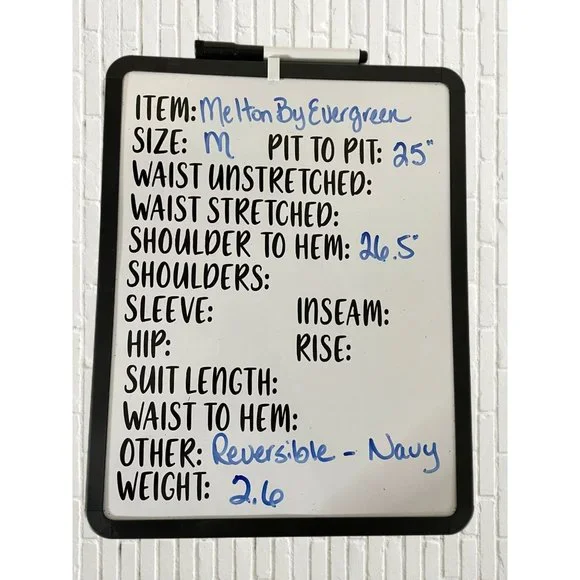 ITEM: Melton By Evergreen
SIZE: M PIT TO PIT: 25"
WAIST UNSTRETCHED:
WAIST STRETCHED:
SHOULDER TO HEM: 26.5"
SHOULDERS:
SLEEVE: INSEAM:
HIP: RISE:
SUIT LENGTH:
WAIST TO HEM:
OTHER: Reversible - Navy
WEIGHT: 2.6